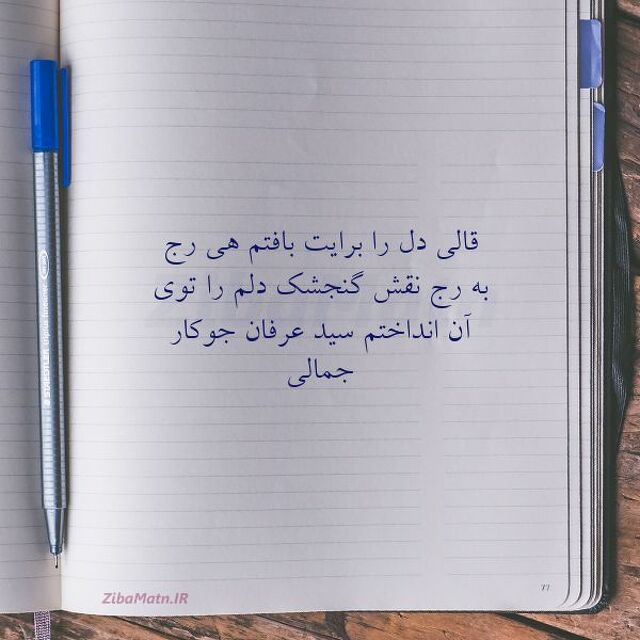 قالی دل را برایت بافتم هی رج
به رج نقش گنجشک دلم را توی
آن انداختم سید عرفان جوکار
جمالی
STAEDTLER
ZibaMatn.IR